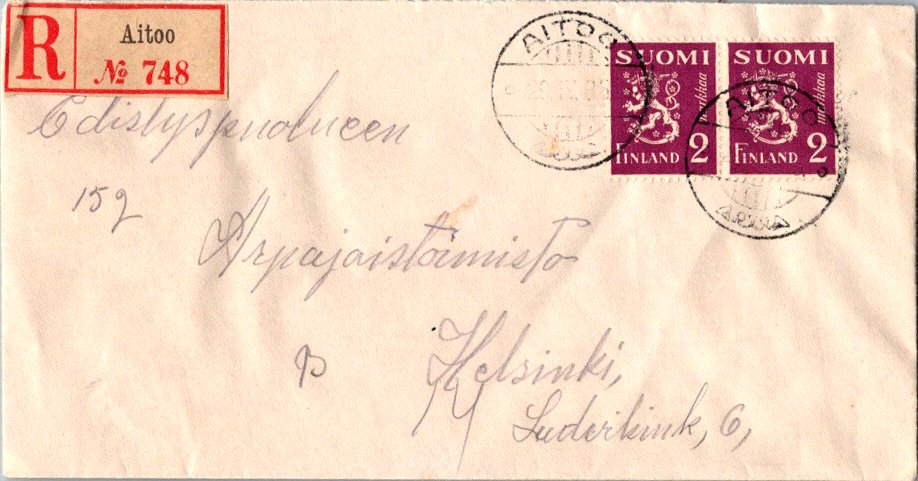 R
Aitoo
№ 748
AITOO
SUOMI SUOMI
markkaa markkaa
FINLAND 2 FINLAND 2
AITOO
Edistyspuolueen
152
Arpajaistoimisto
Helsinki,
Luderikink, 6,